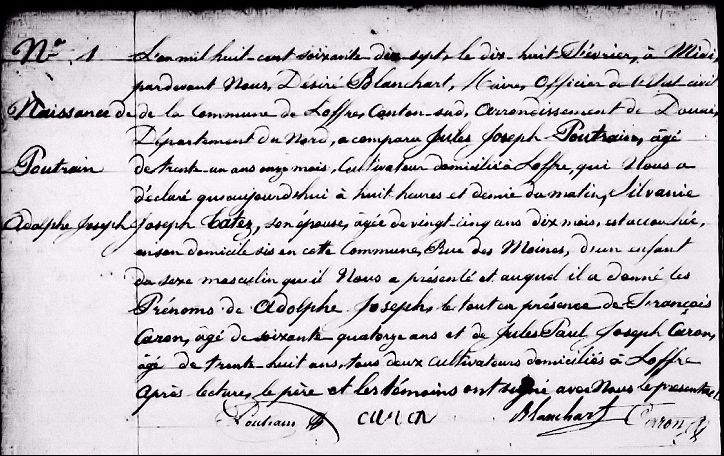 Nr. 1
Naissance de
Poutrain
Adolphe Joseph
L'an mil huit-cent soixante dix-sept, le dix-huit Février, à Midi,
pardevant Nous, Désiré Blanchart, Maire, Officier de l'Etat-civil
de la Commune de Loffre, Canton-sud, Arrondissement de Douai,
Département du Nord, a comparu Jules Joseph Poutrain, âgé
de trente-un ans onze mois, Cultivateur domicilié à Loffre, qui Nous a
déclaré qu'aujourd'hui à huit heures et demie du matin, Silvanie
Joseph son épouse, âgée de vingt-cinq ans dix mois, est accouchée,
en son domicile sis en cette Commune, Rue des Moines, d'un enfant
du sexe masculin qu'il Nous a présenté et auquel il a donné les
Prénoms de Adolphe Joseph, le tout en présence de François
Caron, âgé de soixante quatorze ans et de Jules Paul Joseph Caron,
âgé de trente-huit ans, tous deux cultivateurs domiciliés à Loffre
Après lecture, le père et les témoins ont signé avec Nous le présent
Poutrain caron Blanchart Caron